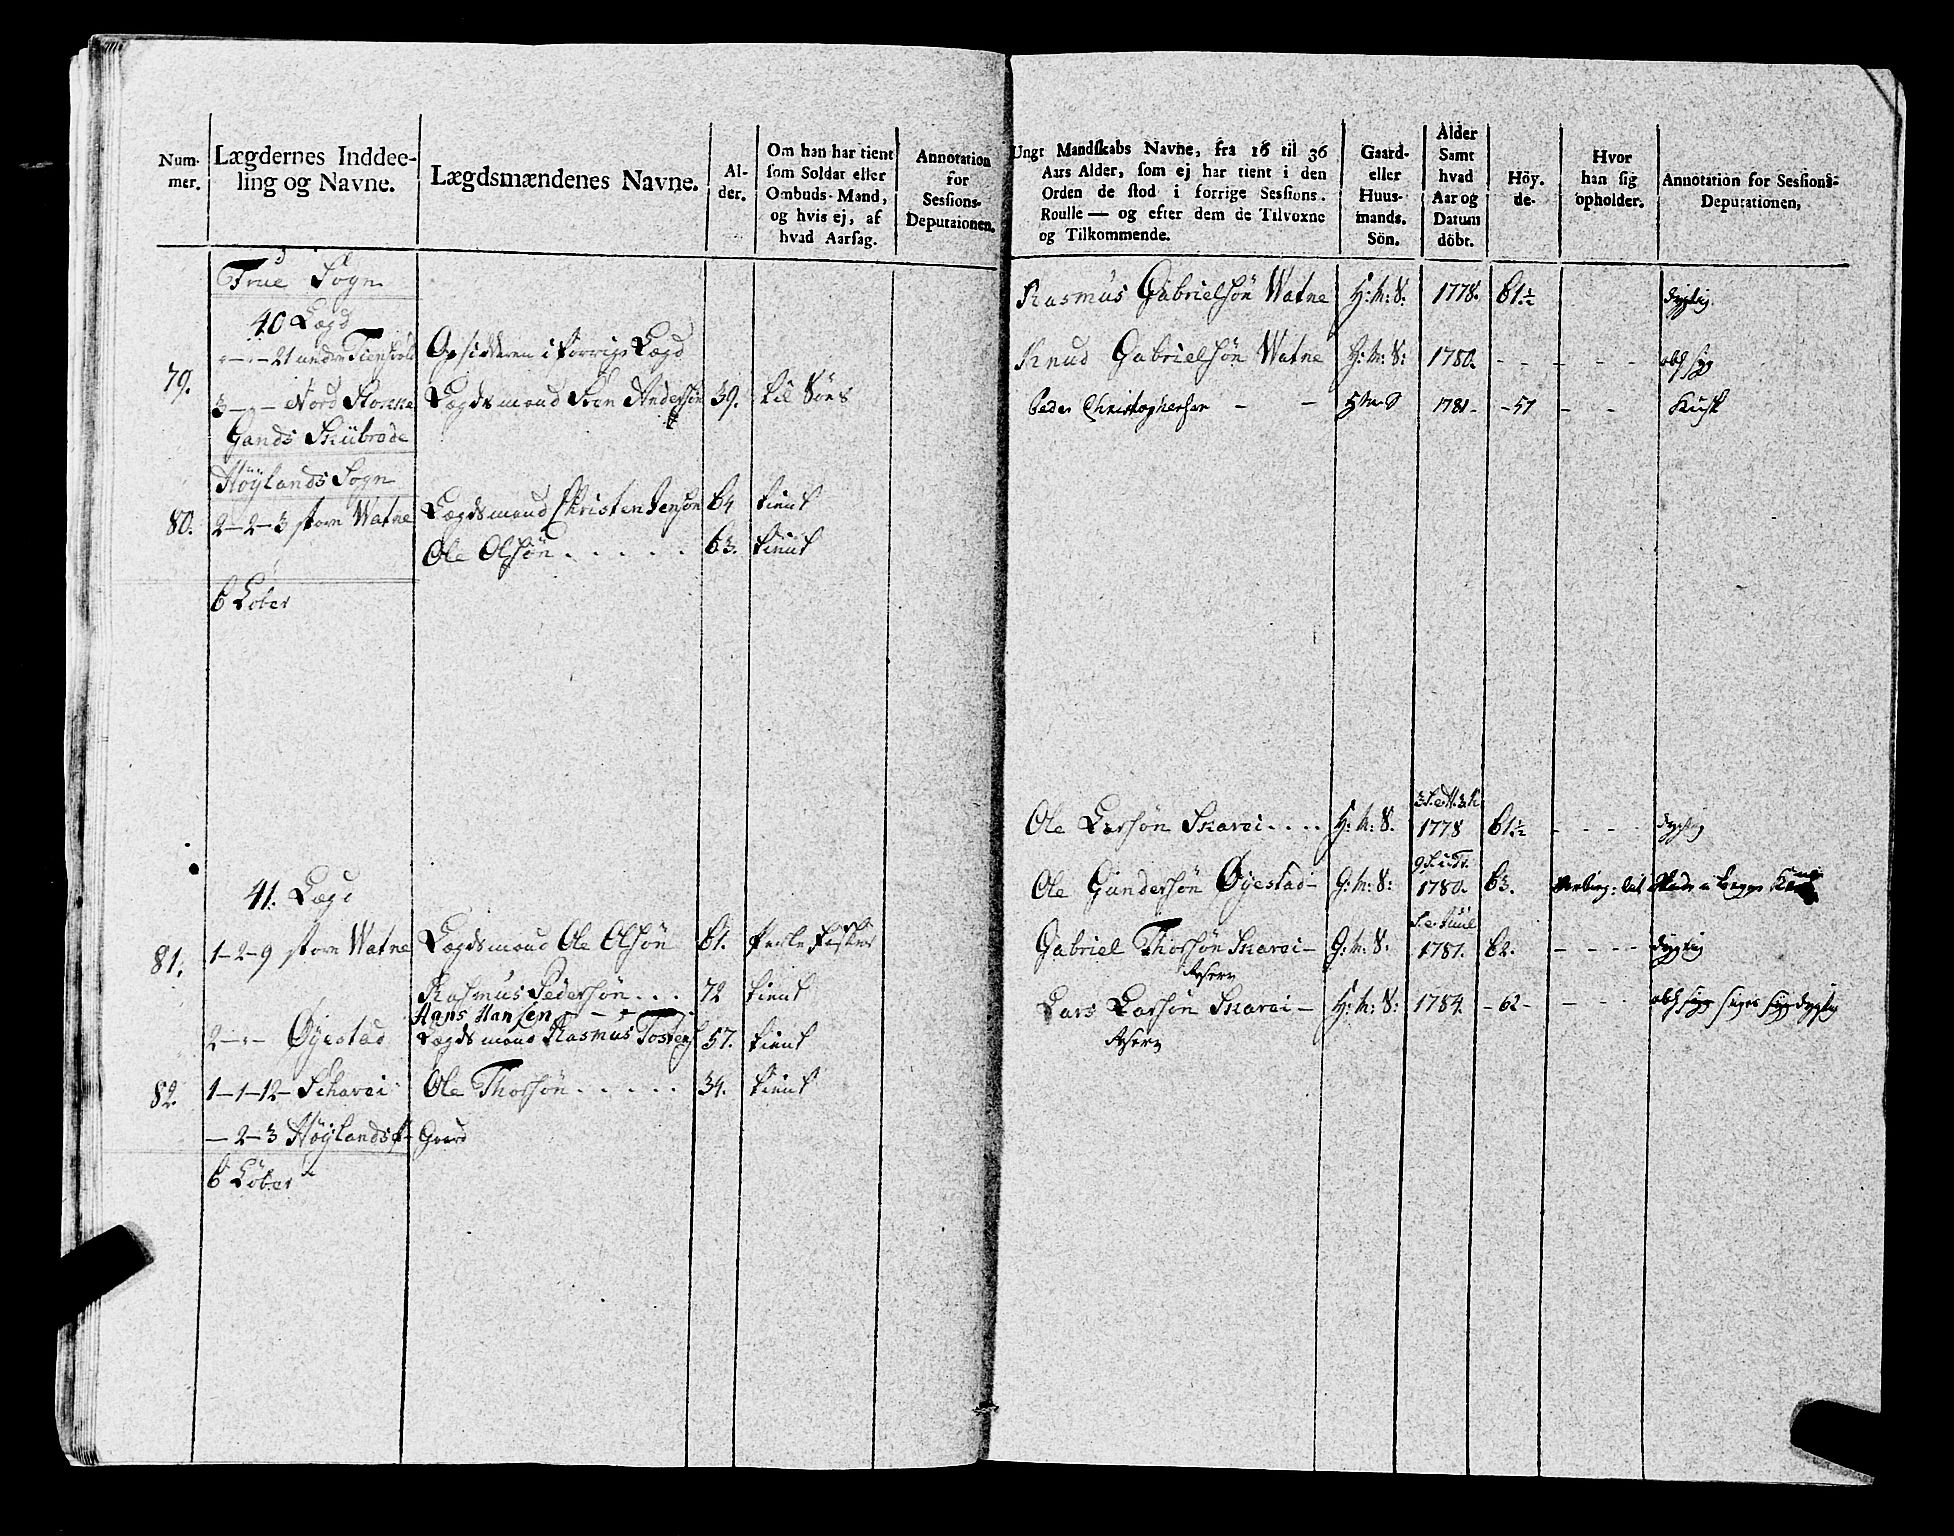 Num-
mer.
Lægdernes Inddee-
ling og Navne.
Lægdsmændenes Navne.
Al-
der.
Om han har tient
som Soldat eller
Ombuds-Mand,
og hvis ej, af
hvad Aarsag.
Annotation
for
Sessions-
Deputaionen.
True Sogn
40 Lægd
79.
3 - - - Nord Stokke
Lægdsmand Sven Andersøn 39.
Gands Skibrode
Høylands Sogn
80. 2-2-3 storn Watne
Lægdsmand Christen Jensøn 64 tient
Ole Olsøn . . . . . 63. tient
6 Løber
41. Lægd
81. 1-2-9 storn Watne
Lægdsmand Ole Olsøn 61. Perle Fisker
Rasmus Pedersøn . . . 72 tient
Hans Hansen
2 - - - Øyestad
Lægdsmand Rasmus Tosten 57. tient
82. 1-1-12- Scharei
Ole Thorsøn . . . . . 34. tient
- 2-3 Høylands P-
Gaard
6 Løber
Ungt Mandskabs Navne, fra 16 til 36
Aars Alder, som ej har tient i den
Orden de stod i forrige Sessions-
Roulle — og efter dem de Tilvoxne
og Tilkommende.
Gaard-
eller
Huus-
mands.
Sön.
Alder
Samt
hvad
Aar og
Datum
döbt.
Höy.
de-
Hvor
han sig
opholder.
Annotation for Sessions-
Deputationen,
Rasmus Gabrielsøn Watne H: m: S: 1778. 61½ dygtig
Knud Gabrielsøn Watne H: m: S: 1780. - - - - -
Peder Christophersen - - H m S 1781 - - 57 - - Kusk
Ole Larsøn Skarei . . . . H: m: S. 1778 61½ - - - - dygtig
Ole Gundersøn Øyestad - G: m: S: 1780. 63.
Gabriel Thorsøn Skarei - G: m: S: 1781. 62. - - - - dygtig
Reserv
Lars Larsøn Skarei - H: m: S: 1784. - 62 - - - -
Reserv